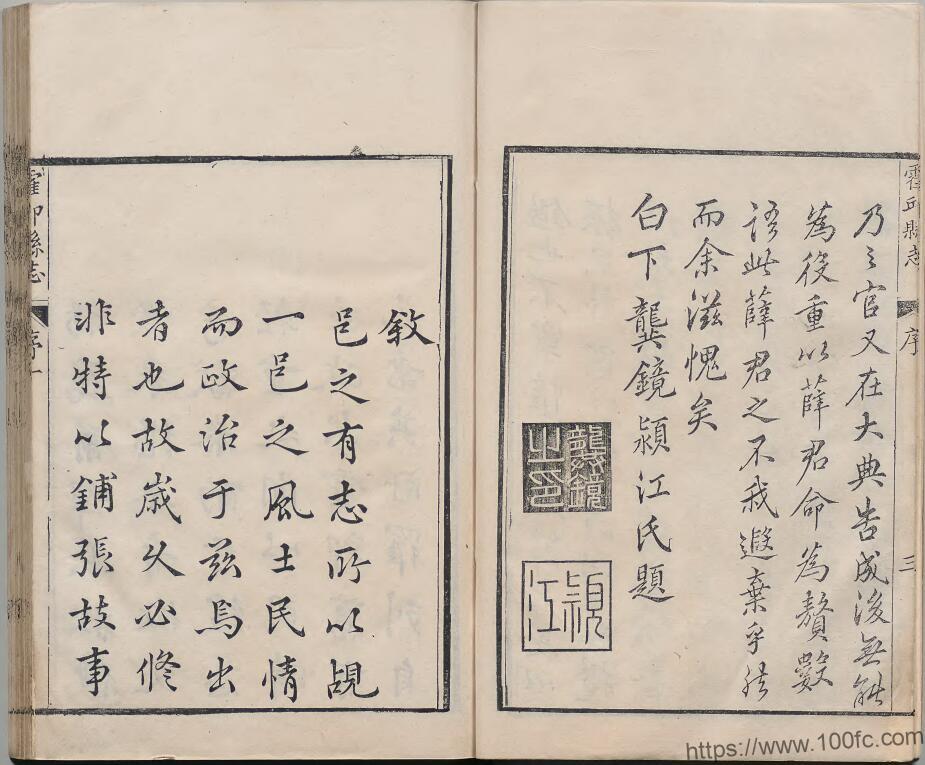 霍丘縣志
序
三
乃之官又在大典告成後無能
為役重以薛君命為贅數
語此薛君之不我遐棄乎然
而余滋愧矣
白下龔鏡潁江氏題
龔鏡之印
潁江
敘
邑之有志所以覘
一邑之風土民情
而政治于茲焉出
者也故歲久必修
非特以鋪張故事
霍邱縣志
序
一
https://www.100fc.com